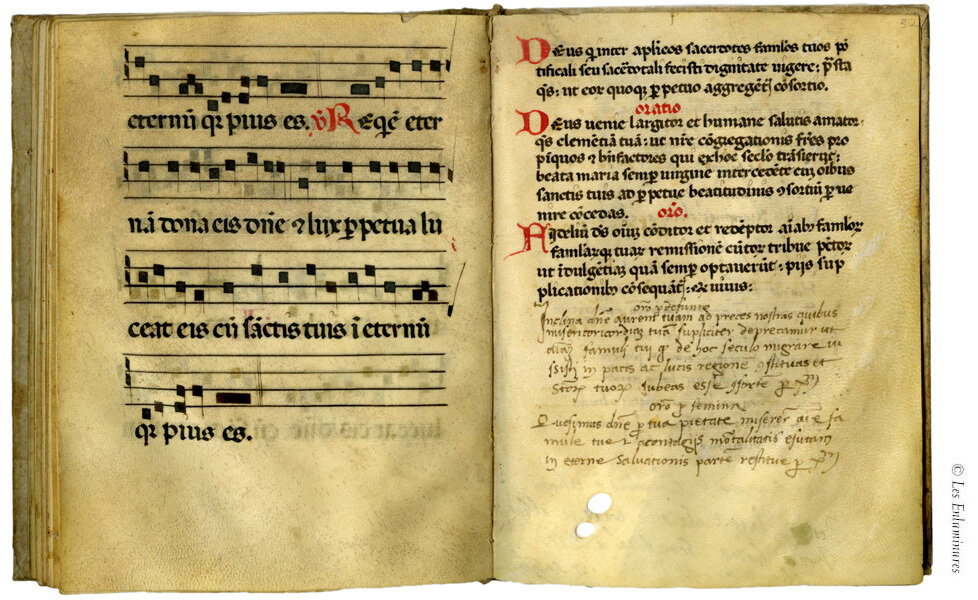 eternũ qr pius es. ℣ Reqẽ eter
nã dona eis dñe ⁊ lux ꝑpetua lu
ceat eis cũ sãctis tuis ĩ eternũ
qr pius es.
Deus q̃ inter aplicos sacerdotes famlos tuos põ
tificali seu sacẽdotali fecisti dignitate uigere: p̃sta
q̃s: ut eor quoqꝫ ꝑpetuo aggregent̃ cõsortio.
oratio
Deus uenie largitor et humane salutis amator:
q̃s clemẽtiã tuã: ut nr̃e cõgregationis fr̃es pro
pĩquos ⁊ bñfactores qui ex hoc seclo trãsierũt:
beata maria semꝑ uirgine intercedẽte cũ oibus
sanctis tuis ad ꝑpetue beatitudinis ꝯsortiũ ꝑue
nire cõcedas. orõ.
Fideliũ ds oiũm cõditor et redẽptor aĩabꝫ famlor
famlarqꝫ tuar remissionẽ cũctor tribue pctõr
ut ĩdulgẽtiaꝫ quã semꝑ optauerũt: pijs sup
plicationibꝫ cõsequant̃: Qui uiuis:
orõ ꝓ defuncto
Inclina dñe aurem tuam ad preces nostras quibus
misericordiaꝫ tuã supliciter deprecamur ut
aiaꝫ famuli tui quã de hoc seculo migrare iu
ssisti in pacis ac lucis regione ꝯstituas et
Sctõꝝ tuoꝝ iubeas esse ꝯsortẽ ꝑ xp̃m
orõ ꝓ femina
Quesumus dñe ꝓ tua pietate miserere aĩe fa
mule tue ⁊ a contagijs mortalitatis exutam
in eterne saluationis partẽ restitue ꝑ xp̃m
© Les Enluminures